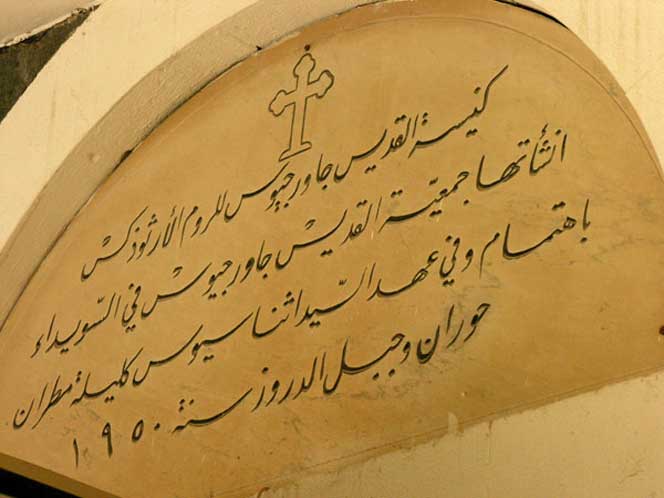 كنيسة القديس جاورجيوس للروم الأرثوذكس
انشأتها جمعيّة القديس جاورجيوس في السّويداء
باهتمام وفي عهد السيد اثناسيوس كليلة مطران
حوران وجبل الدروز سنة ١٩٥٠